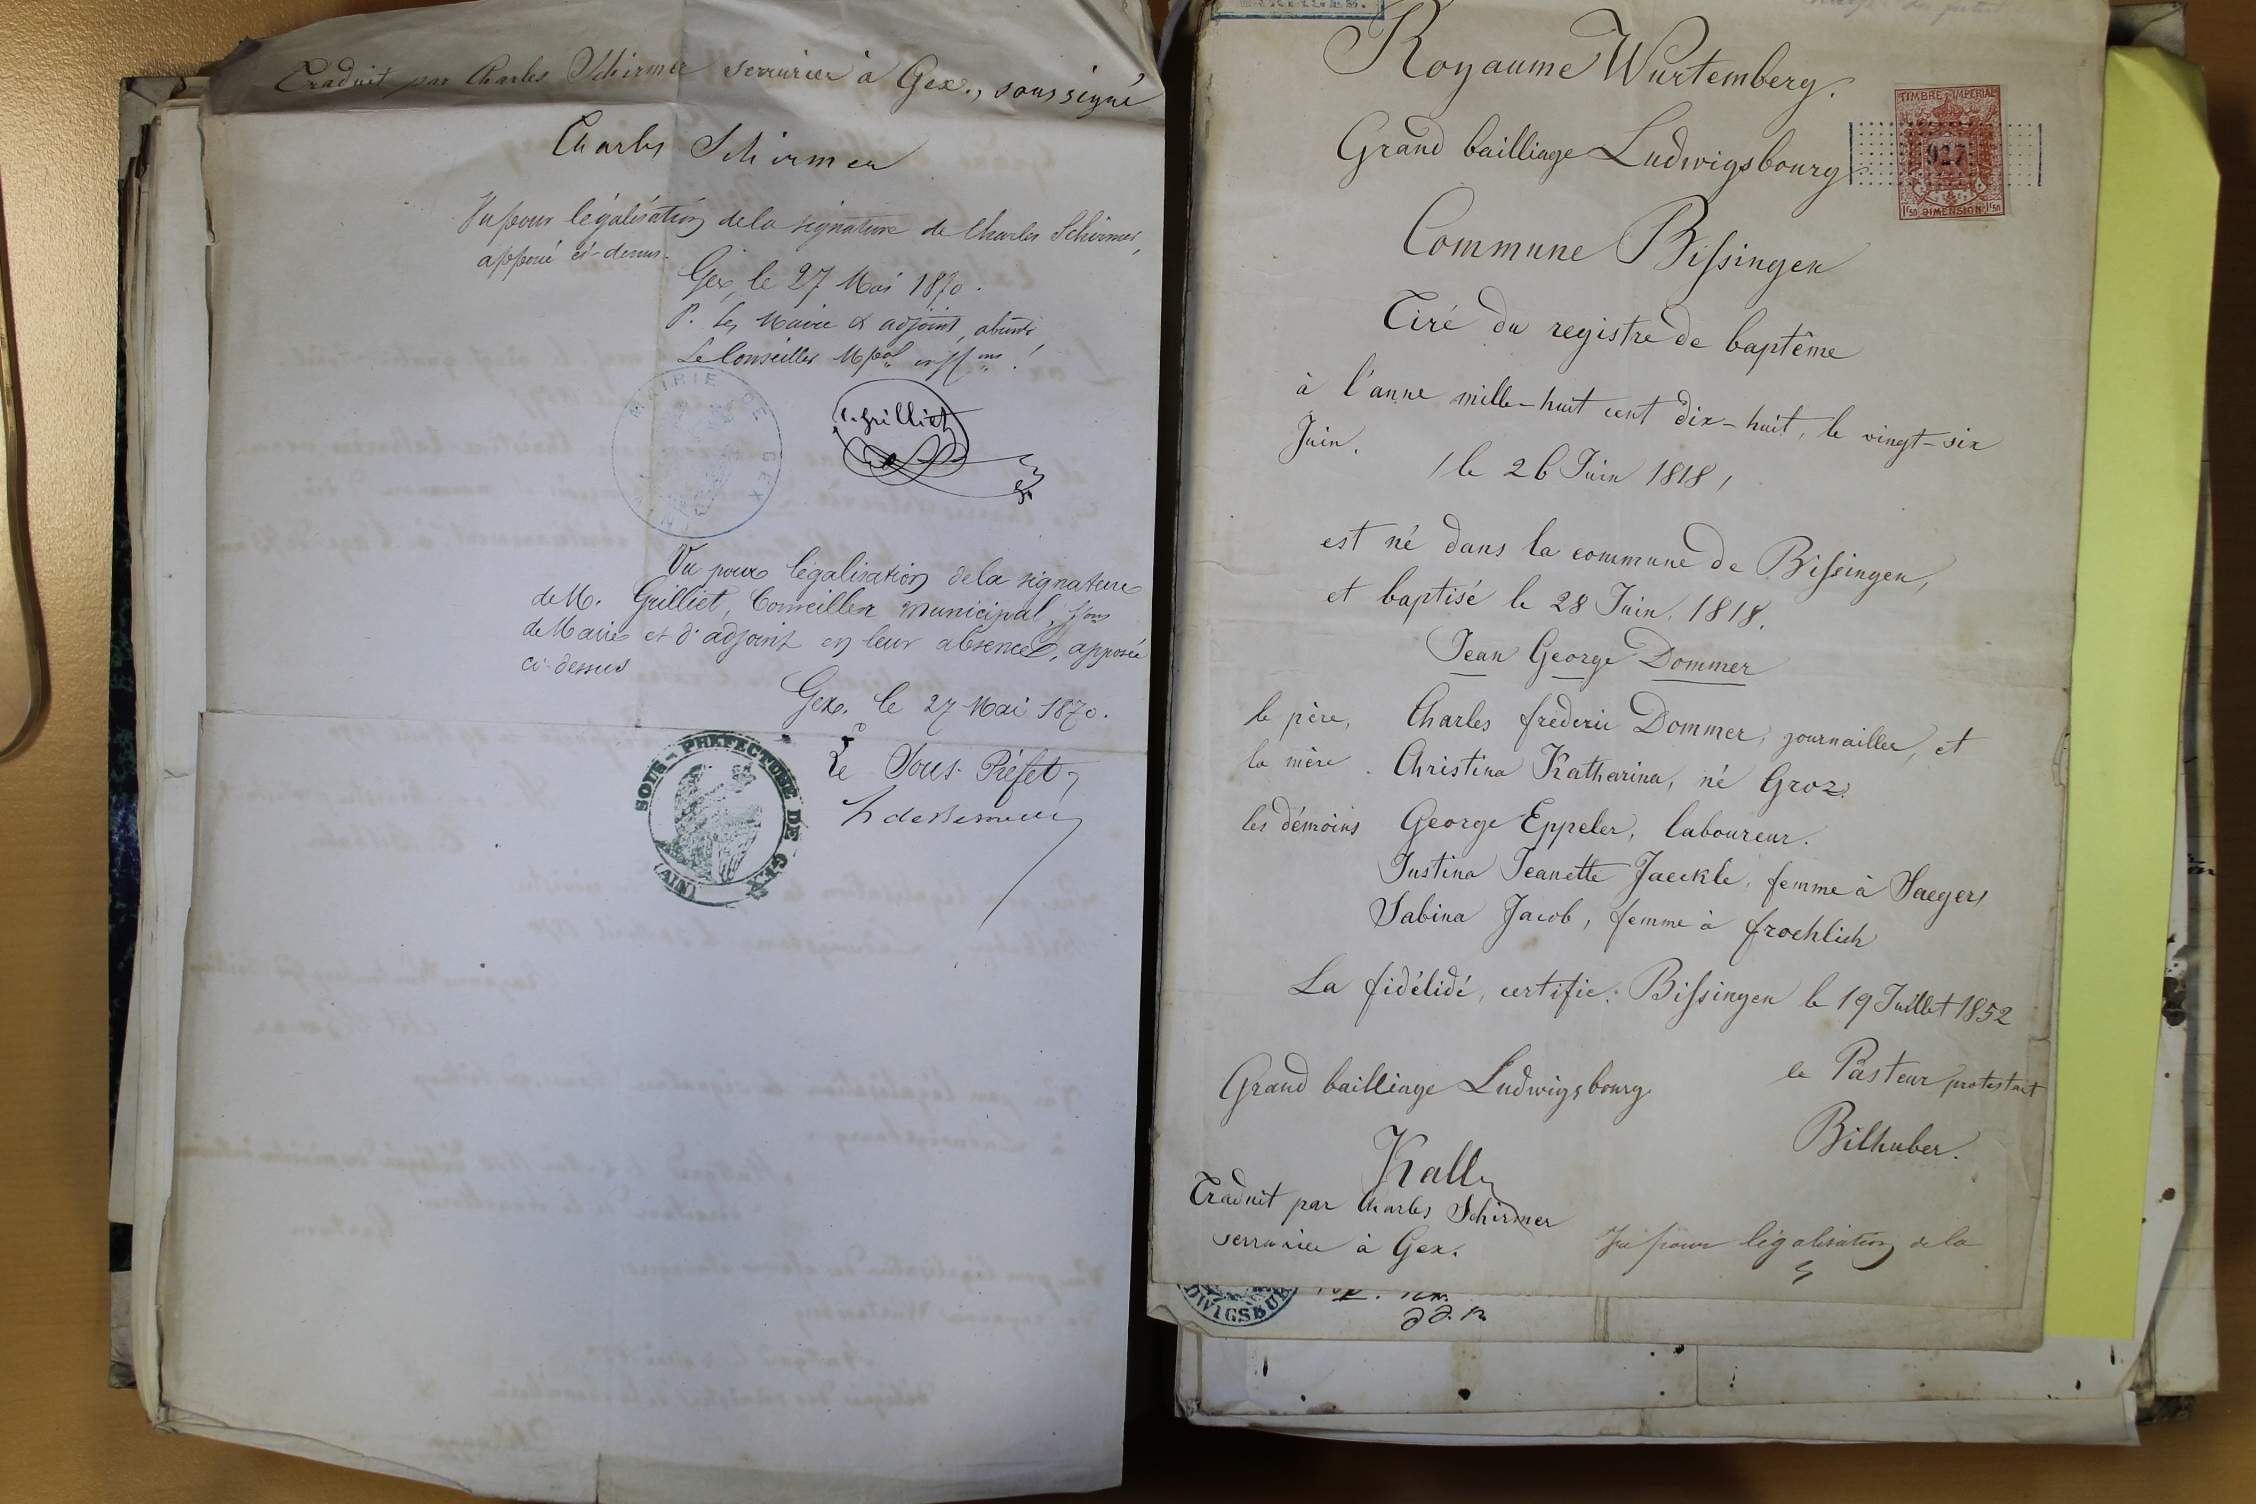 Traduit par Charles Schirmer serrurier à Gex, soussigné
Charles Schirmer
Vu pour légalisation de la signature de Charles Schirmer,
apposé ci-dessus.
Gex, le 27 Mai 1870.
P. le Maire & adjoint, absents
Le Conseiller Mpal
MAIRIE DE GEX
C. Grilliet
Vu pour légalisation de la signature
de M. Grilliet, Conseiller municipal, fons
de Maire et d'adjoint en leur absence, apposée
ci-dessus
Gex, le 27 Mai 1870.
Le Sous-Préfet,
SOUS-PRÉFECTURE DE GEX
(AIN)
Royaume Wurtemberg.
TIMBRE IMPERIAL
927
1F50 DIMENSION 1F50
Grand bailliage Ludwigsbourg
Commune Bissingen
Tiré du registre de baptême
à l'anne mille-huit cent dix-huit, le vingt-six
Juin.
/ le 26 Juin 1818 /
est né dans la commune de Bissingen,
et baptisé le 28 Juin, 1818.
Jean George Dommer
le père, Charles fréderic Dommer, journailler, et
la mère. Christina Katharina, né Groz.
les démoins George Eppeler, laboureur.
Justina Jeanette Jaeckle, femme à Saegers
Sabina Jacob, femme à froehlich
La fidélidé, certifie: Bissingen le 19 Juillet 1852
Grand bailliage Ludwigsbourg
le Pasteur protestant
Bilhuber.
Kall
Traduit par Charles Schirmer
serrurier à Gex.
Vu pour légalisation de la